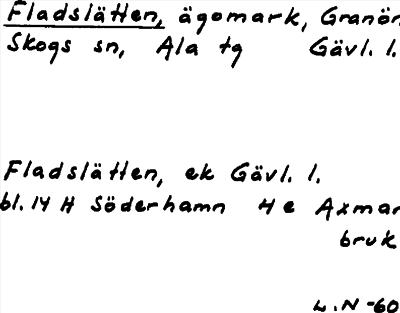 Fladslätten, ägomark, Granön
Skogs sn, Ala tg Gävl. l.
Fladslätten, ek Gävl. l.
bl. 14 H Söderhamn 4 e Axmar
bruk
L. N -60